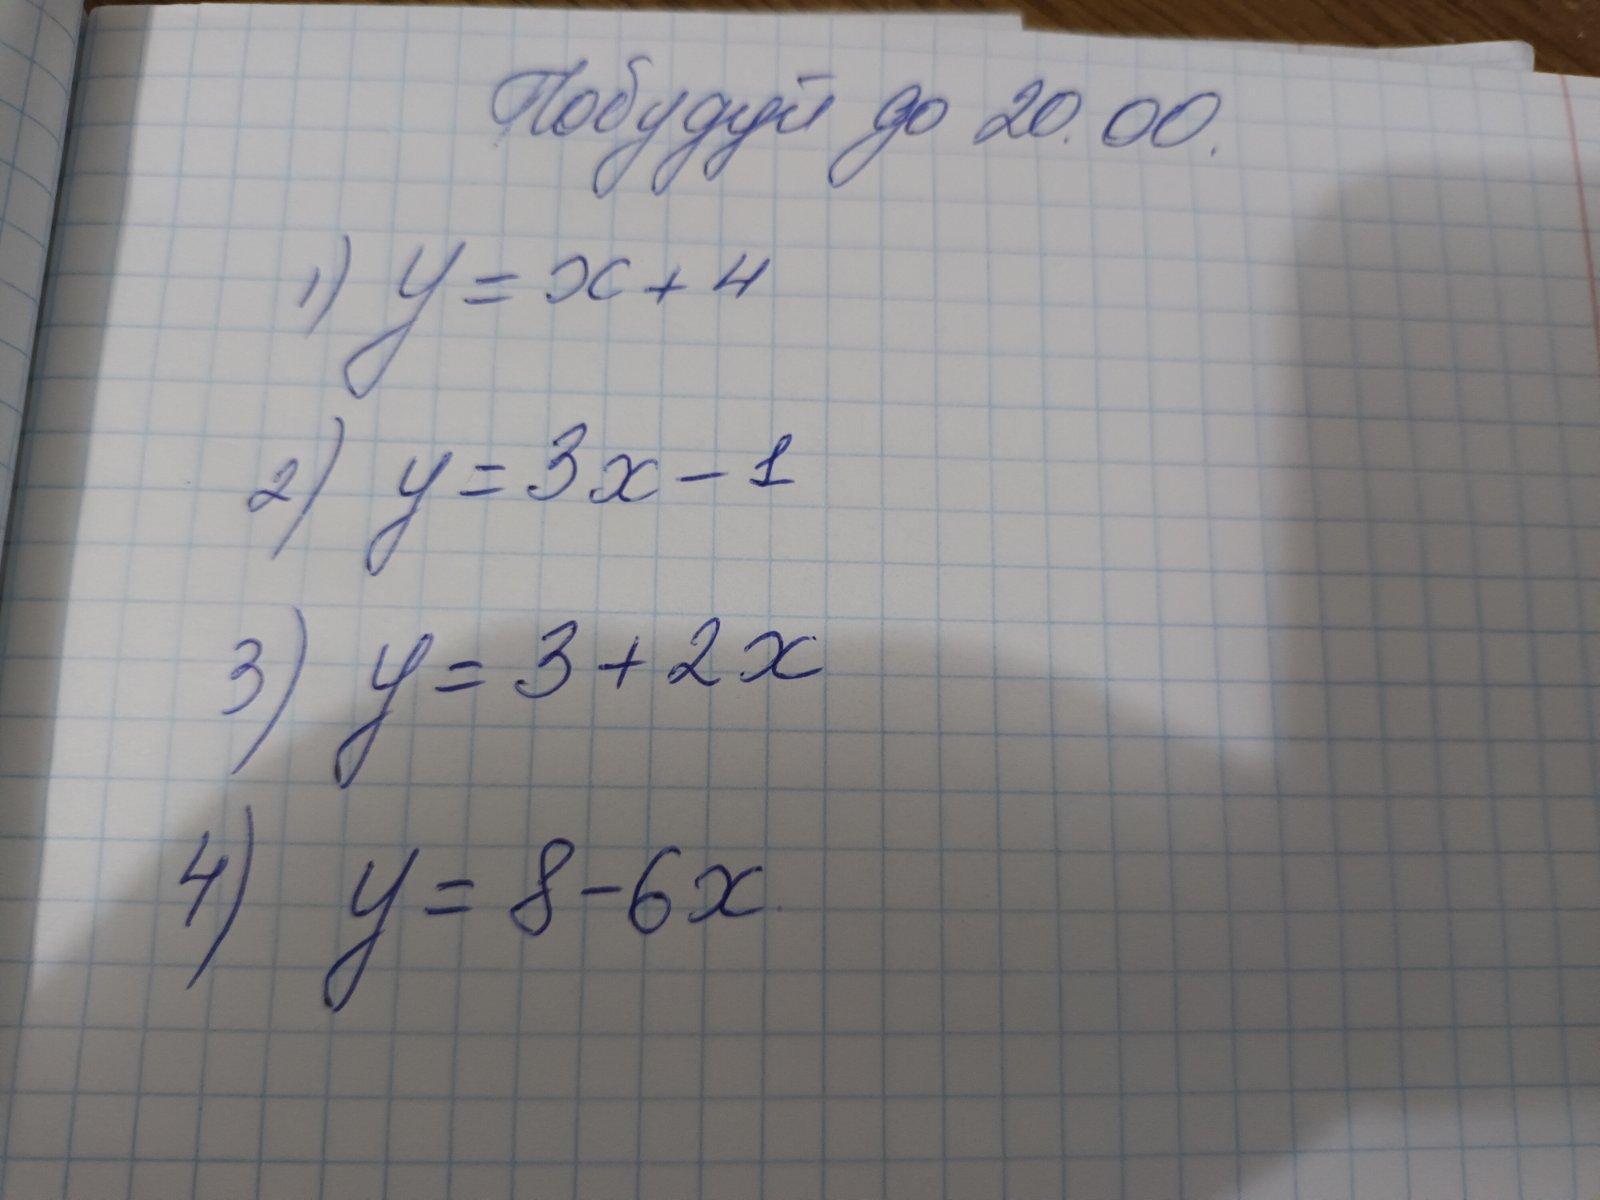 Побудуй до 20.00.
1) y = x + 4
2) y = 3x - 1
3) y = 3 + 2x
4) y = 8 - 6x